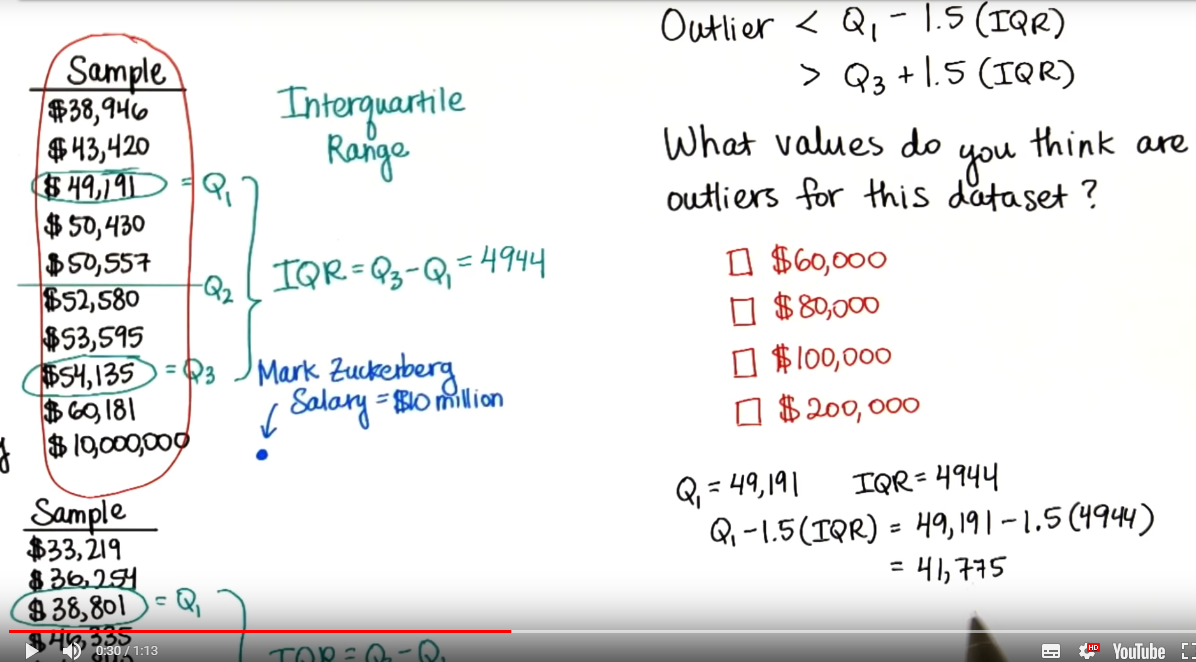 Sample
$38,946
$43,420
$49,191 = Q1
$50,430
$50,557
Q2
$52,580
$53,595
$54,135 = Q3
$60,181
$10,000,000
Interquartile
Range
IQR = Q3 - Q1 = 4944
Mark Zuckerberg
Salary = $10 million
Sample
$33,219
$36,254
$38,801 = Q1
$46,335
IQR = Q3 - Q1
Outlier < Q1 - 1.5 (IQR)
> Q3 + 1.5 (IQR)
What values do you think are
outliers for this dataset?
$60,000
$80,000
$100,000
$200,000
Q1 = 49,191 IQR = 4944
Q1 - 1.5 (IQR) = 49,191 - 1.5 (4944)
= 41,775
0:30 / 1:13
HD
YouTube